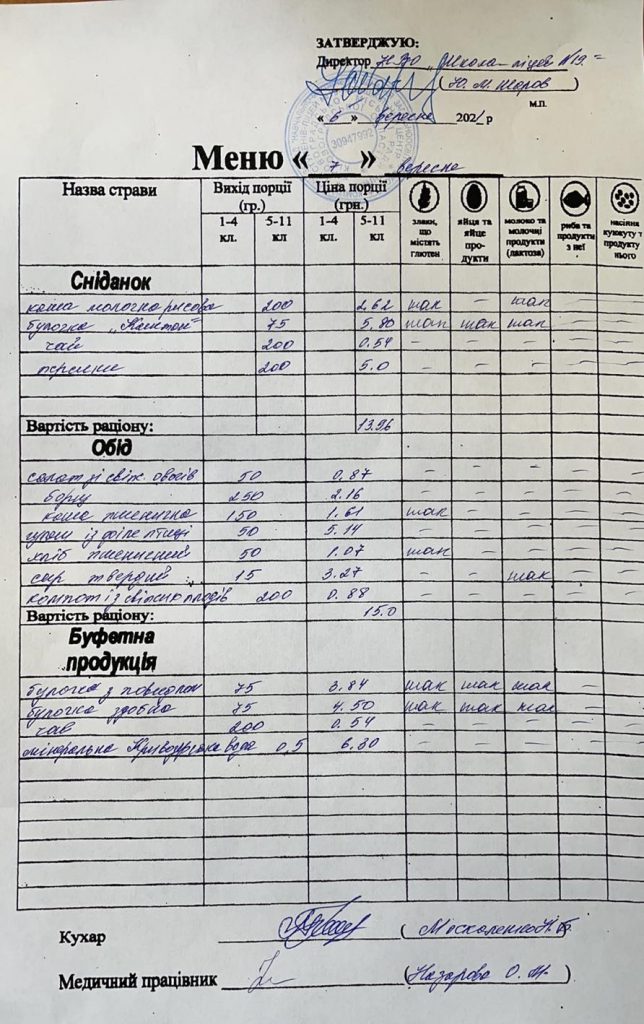 ЗАТВЕРДЖУЮ:
Директор НВО „Школа-ліцей №19"
(Ю. М. Жоров)
м.п.
« 6 » вересня 2021 р
30947992
Меню « 7 » вересня
Назва страви Вихід порції (гр.) Ціна порції (грн.)
1-4 кл. 5-11 кл 1-4 кл. 5-11 кл
злаки, що містять глютен
яйця та яйце продукти
молоко та молочні продукти (лактоза)
риба та продукти з неї
насіння кунжуту т продукту нього
Сніданок
каша молочна рисова 200 2.62 так – так – –
булочка 75 5.80 так так так – –
чай 200 0.54 – – – – –
200 5.0 – – – – –
Вартість раціону: 13.96
Обід
салат зі свіж. овочів 50 0.87 – – – – –
борщ 250 2.16 – – – – –
каша пшенична 150 1.61 так – – – –
із філе птиці 50 5.14 – – – – –
хліб пшеничний 50 1.07 так – – – –
сир твердий 15 3.27 – – так – –
компот із свіжих плодів 200 0.88 – – – – –
Вартість раціону: 15.0
Буфетна продукція
булочка з повидлом 75 3.84 так так так – –
булочка здобна 75 4.50 так так так – –
чай 200 0.54 – – – – –
мінеральна вода 0,5 6.30 – – – – –
Кухар (Москаленко Н. В.)
Медичний працівник (Назарова О. М.)